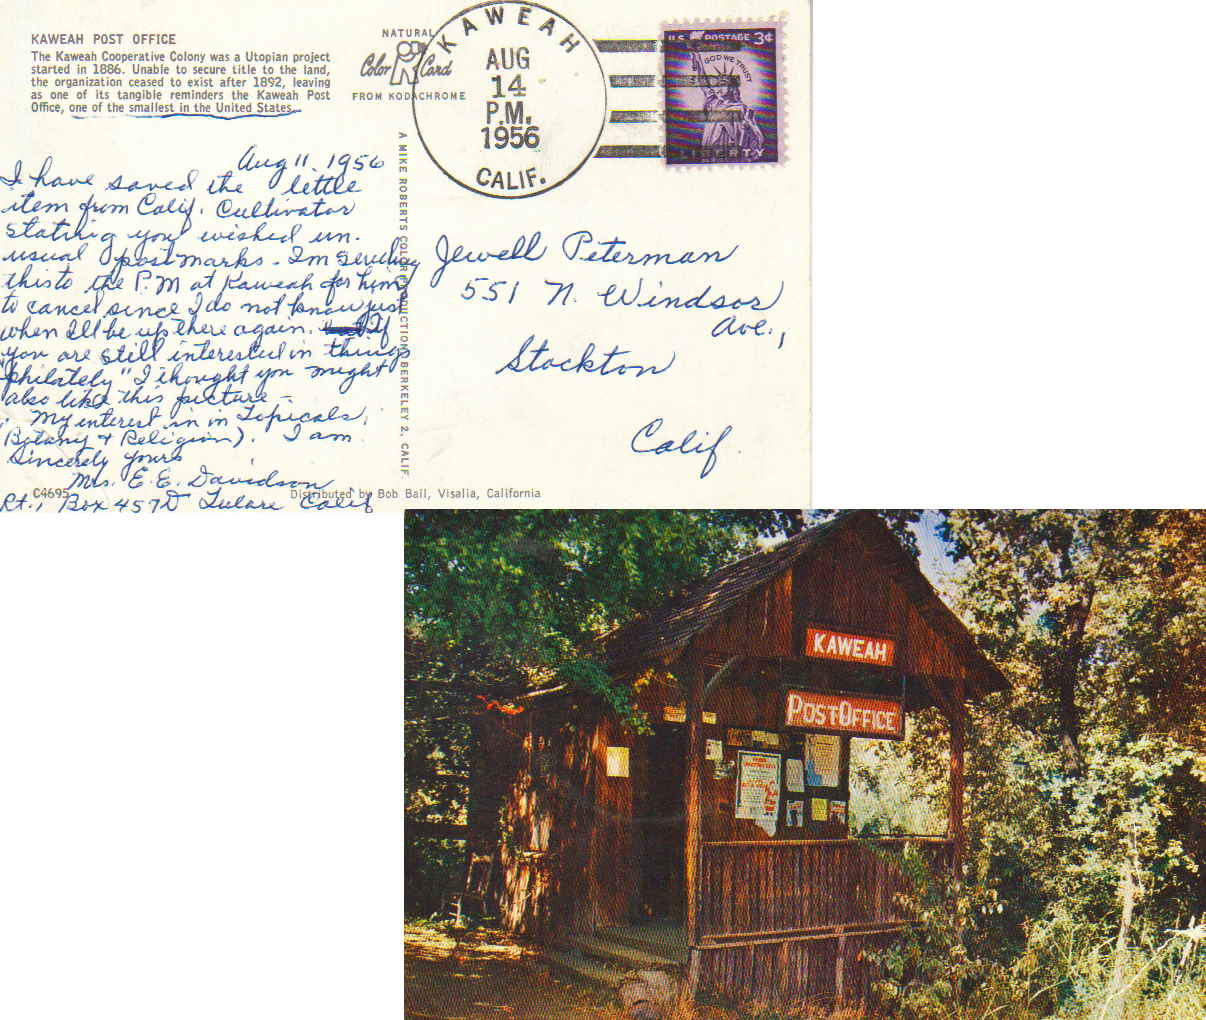 KAWEAH POST OFFICE
The Kaweah Cooperative Colony was a Utopian project
started in 1886. Unable to secure title to the land,
the organization ceased to exist after 1892, leaving
as one of its tangible reminders the Kaweah Post
Office, one of the smallest in the United States.
NATURAL
Color Card
FROM KODACHROME
KAWEAH
AUG
14
P.M.
1956
CALIF.
U.S. POSTAGE 3¢
IN GOD WE TRUST
LIBERTY
Aug 11, 1956
I have saved the little
item from Calif. Cultivator
stating you wished un-
usual postmarks - I'm sending
this to the P.M at Kaweah for him
to cancel since I do not know just
when I'll be up there again. If
you are still interested in things
"philately" I thought you might
also like this picture -
My interest in in Topicals,
Botany + Religion). I am
Sincerely yours
Mrs. E. E. Davidson
Rt. 1 Box 457D Tulare Calif
C4695
Distributed by Bob Ball, Visalia, California
A MIKE ROBERTS COLOR PRODUCTION, BERKELEY 2, CALIF.
Jewell Peterman
551 N. Windsor
Ave.,
Stockton
Calif.
KAWEAH
POST OFFICE